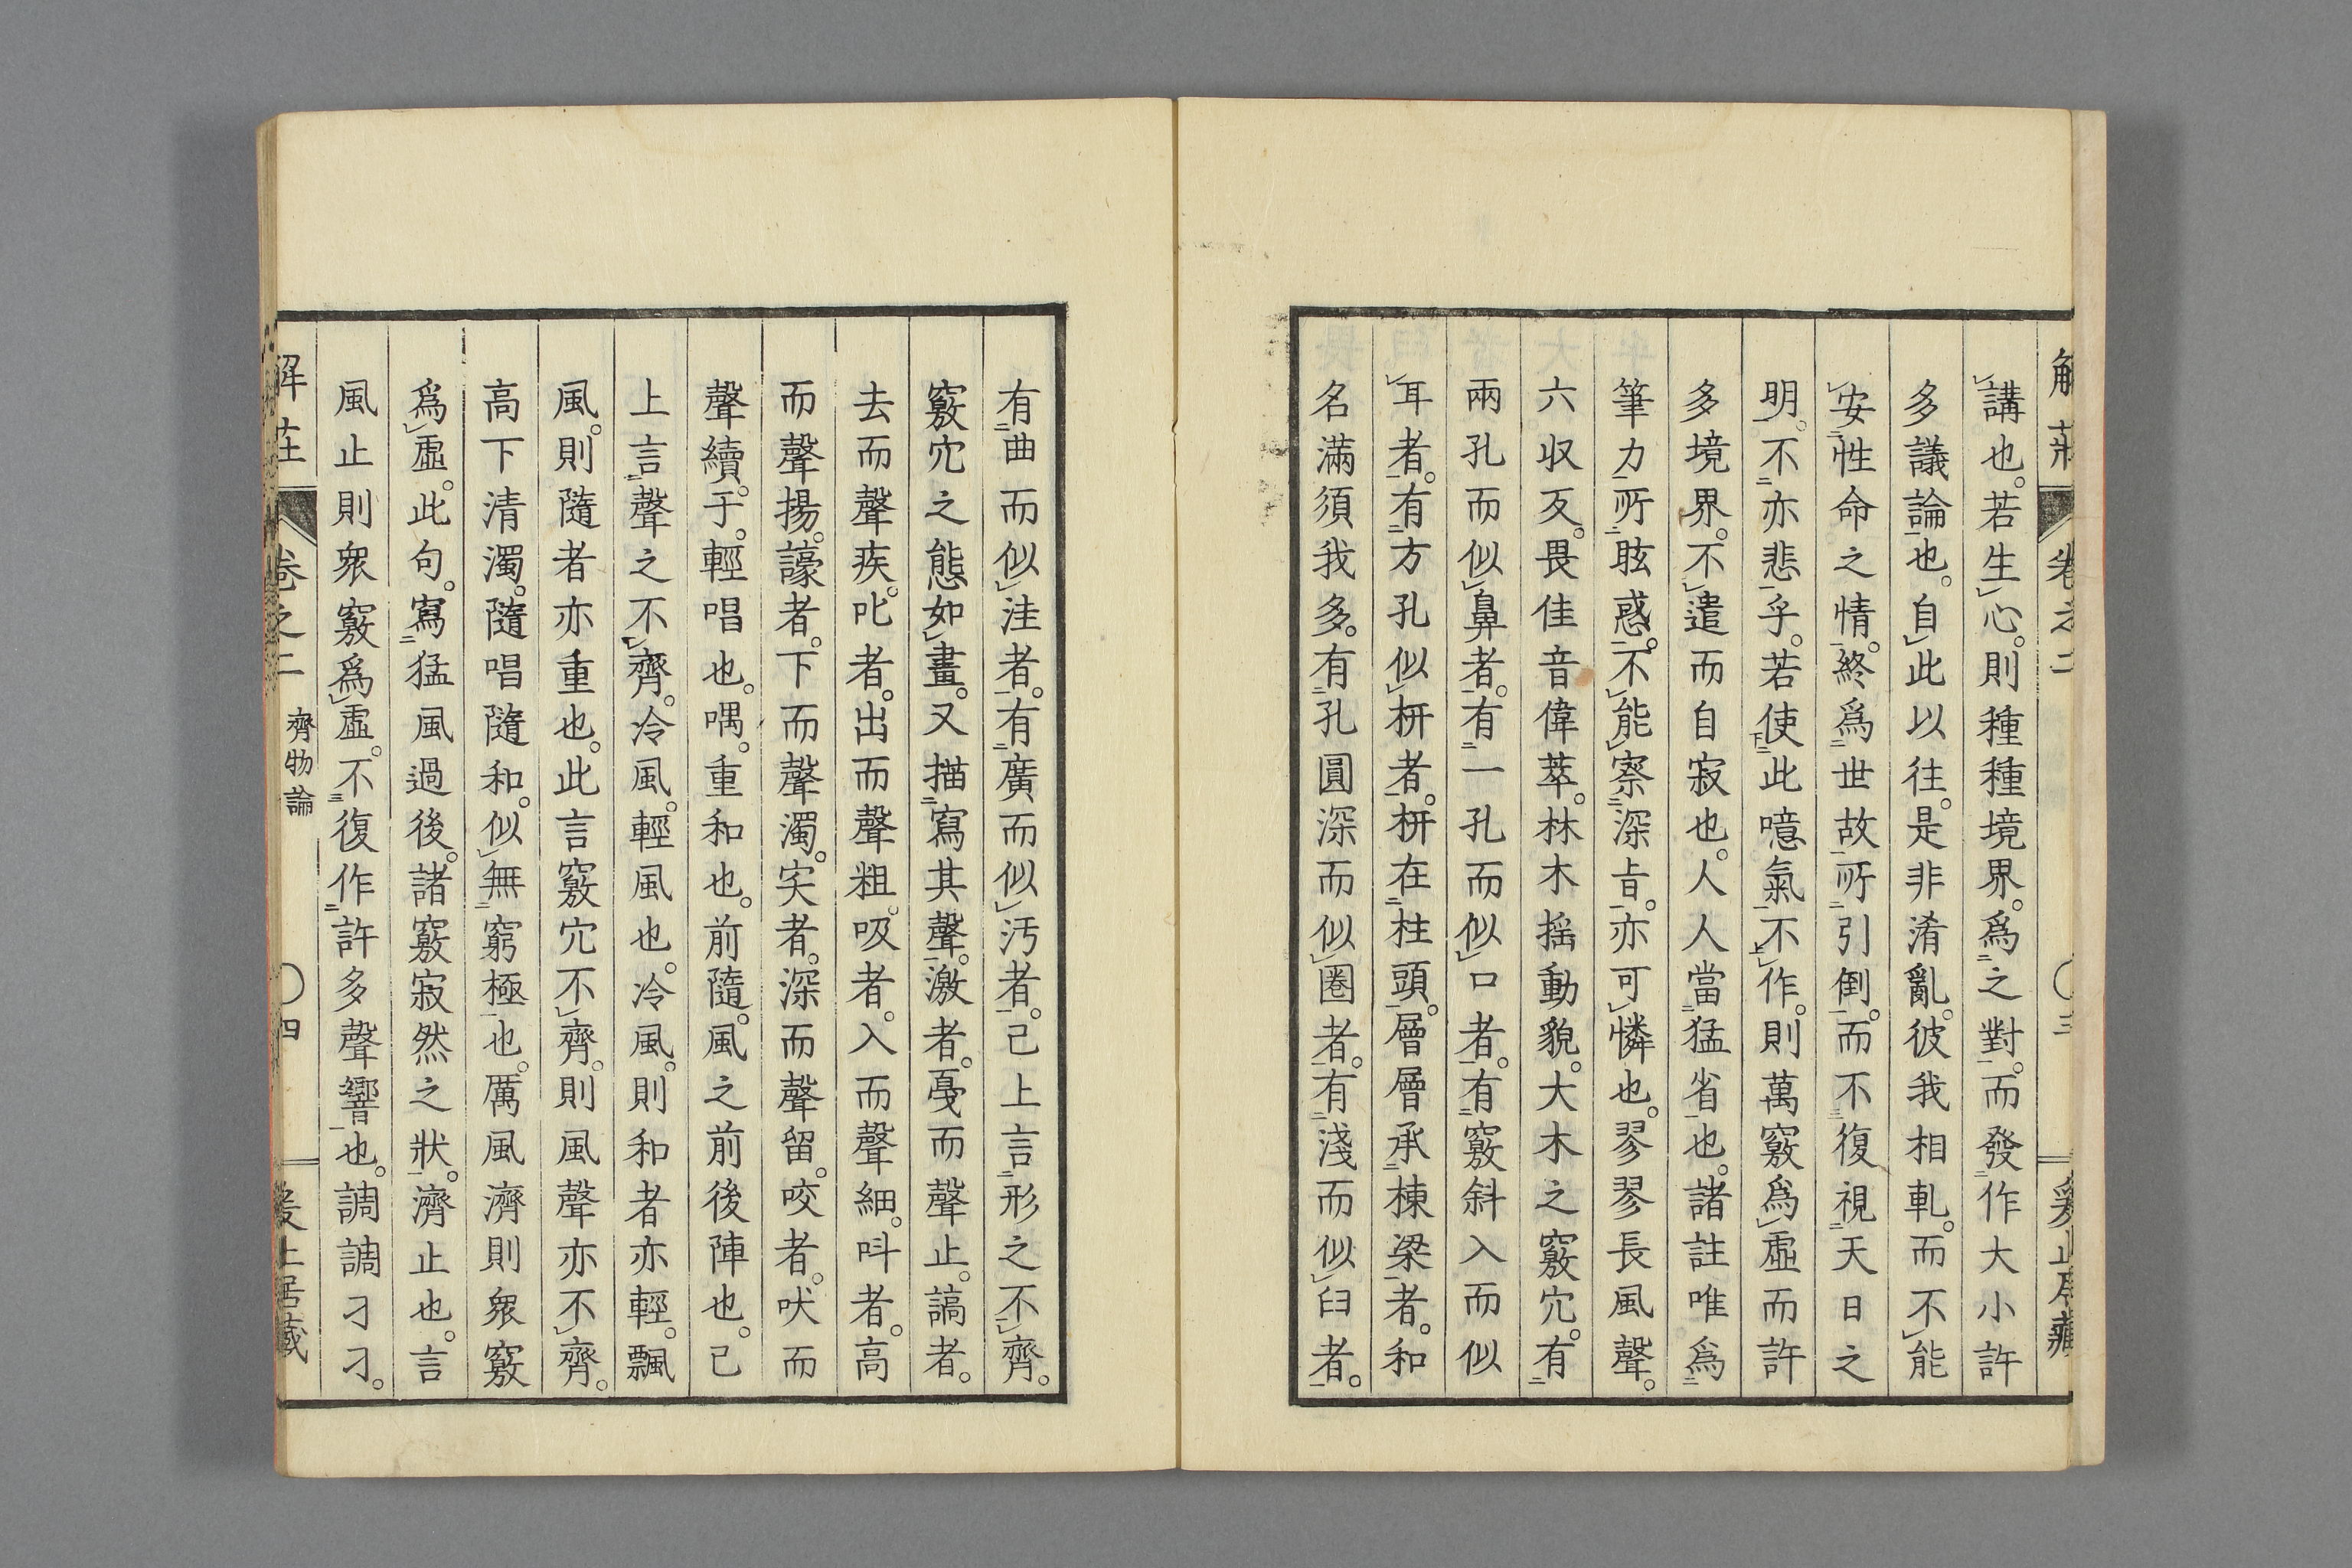 解莊 卷之二 〇三
講也。若生心。則種種境界。爲之對。而發作大小許
多議論也。自此以往。是非淆亂。彼我相軋。而不能
安性命之情。終爲世故所引倒。而不復視天日之
明。不亦悲乎。若使此噫氣不作。則萬竅爲虛而許
多境界。不遣而自寂也。人人當猛省也。諸註唯爲
筆力所眩惑。不能察深旨。亦可憐也。翏翏長風聲。
六収反。畏佳音偉萃。林木搖動貌。大木之竅穴。有
兩孔而似鼻者。有一孔而似口者。有竅斜入而似
耳者。有方孔似枅者。枅在柱頭。層層承棟梁者。和
名滿須我多。有孔圓深而似圈者。有淺而似臼者。
有曲而似洼者。有廣而似汚者。已上言形之不齊。
竅穴之態如畫。又描寫其聲。激者。戞而聲止。謞者。
去而聲疾。叱者。出而聲粗。吸者。入而聲細。叫者。高
而聲揚。譹者。下而聲濁。宎者。深而聲留。咬者。吠而
聲續。于。輕唱也。喁。重和也。前隨。風之前後陣也。已
上言聲之不齊。冷風。輕風也。冷風。則和者亦輕。飄
風。則隨者亦重也。此言竅穴不齊。則風聲亦不齊。
高下清濁。隨唱隨和。似無窮極也。厲風濟則衆竅
爲虛。此句。寫猛風過後。諸竅寂然之狀。濟止也。言
風止則衆竅爲虛。不復作許多聲響也。調調刁刁。
解莊 卷之二 齊物論 〇四